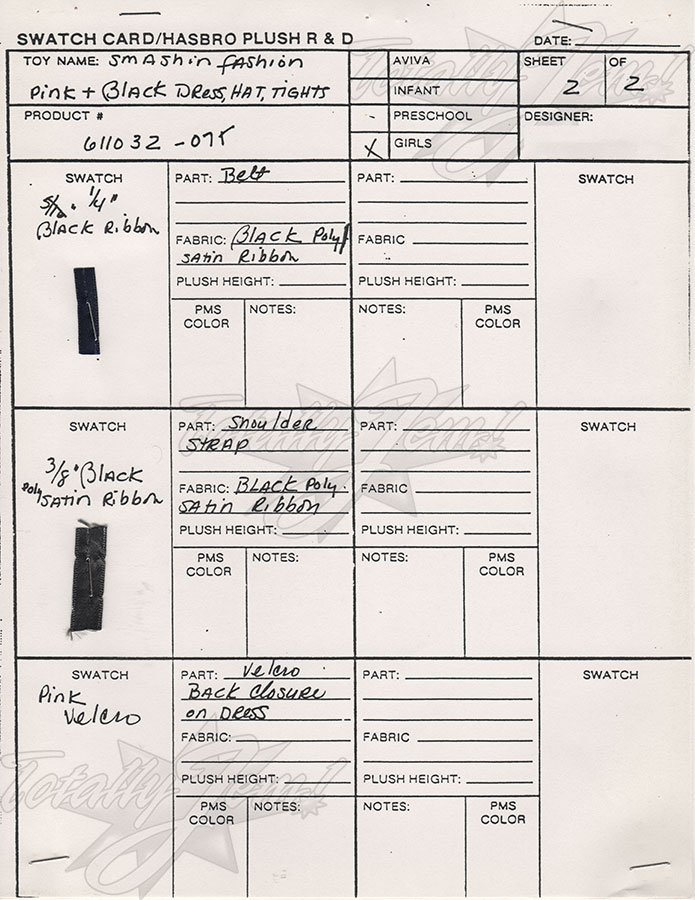 SWATCH CARD/HASBRO PLUSH R & D
DATE:
TOY NAME: Smashin fashion
Pink + Black Dress, HAT, TIGHTS
AVIVA
INFANT
PRESCHOOL
X GIRLS
SHEET 2 OF 2
PRODUCT #
611032-075
DESIGNER:
SWATCH
1/4"
Black Ribbon
PART: Belt
FABRIC: Black Poly
satin Ribbon
PLUSH HEIGHT:
PMS COLOR
NOTES:
PART:
FABRIC
PLUSH HEIGHT:
NOTES:
PMS COLOR
SWATCH
SWATCH
3/8" Black
Poly Satin Ribbon
PART: Shoulder
STRAP
FABRIC: BLACK Poly
satin Ribbon
PLUSH HEIGHT:
PMS COLOR
NOTES:
PART:
FABRIC
PLUSH HEIGHT:
NOTES:
PMS COLOR
SWATCH
SWATCH
Pink
Velcro
PART: Velcro
BACK Closure
on DRESS
FABRIC:
PLUSH HEIGHT:
PMS COLOR
NOTES:
PART:
FABRIC
PLUSH HEIGHT:
NOTES:
PMS COLOR
SWATCH
Totally Jem!
Totally Jem!
Totally Jem!